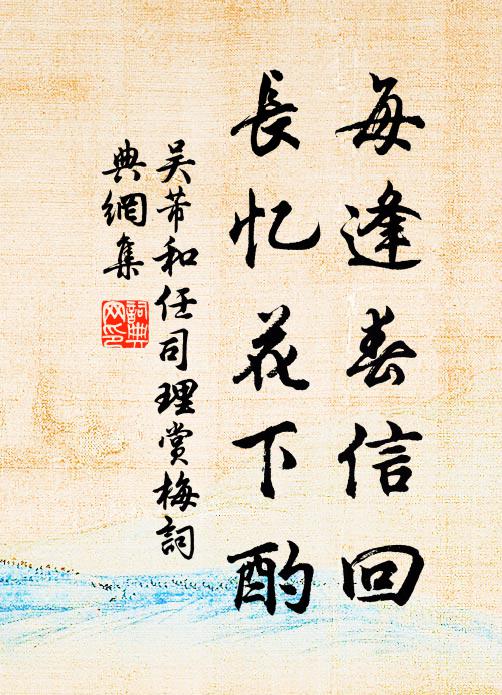 每逢春信回
長忆花下酌
吴芾和任司理赏梅詞
典網集
詞典
网印